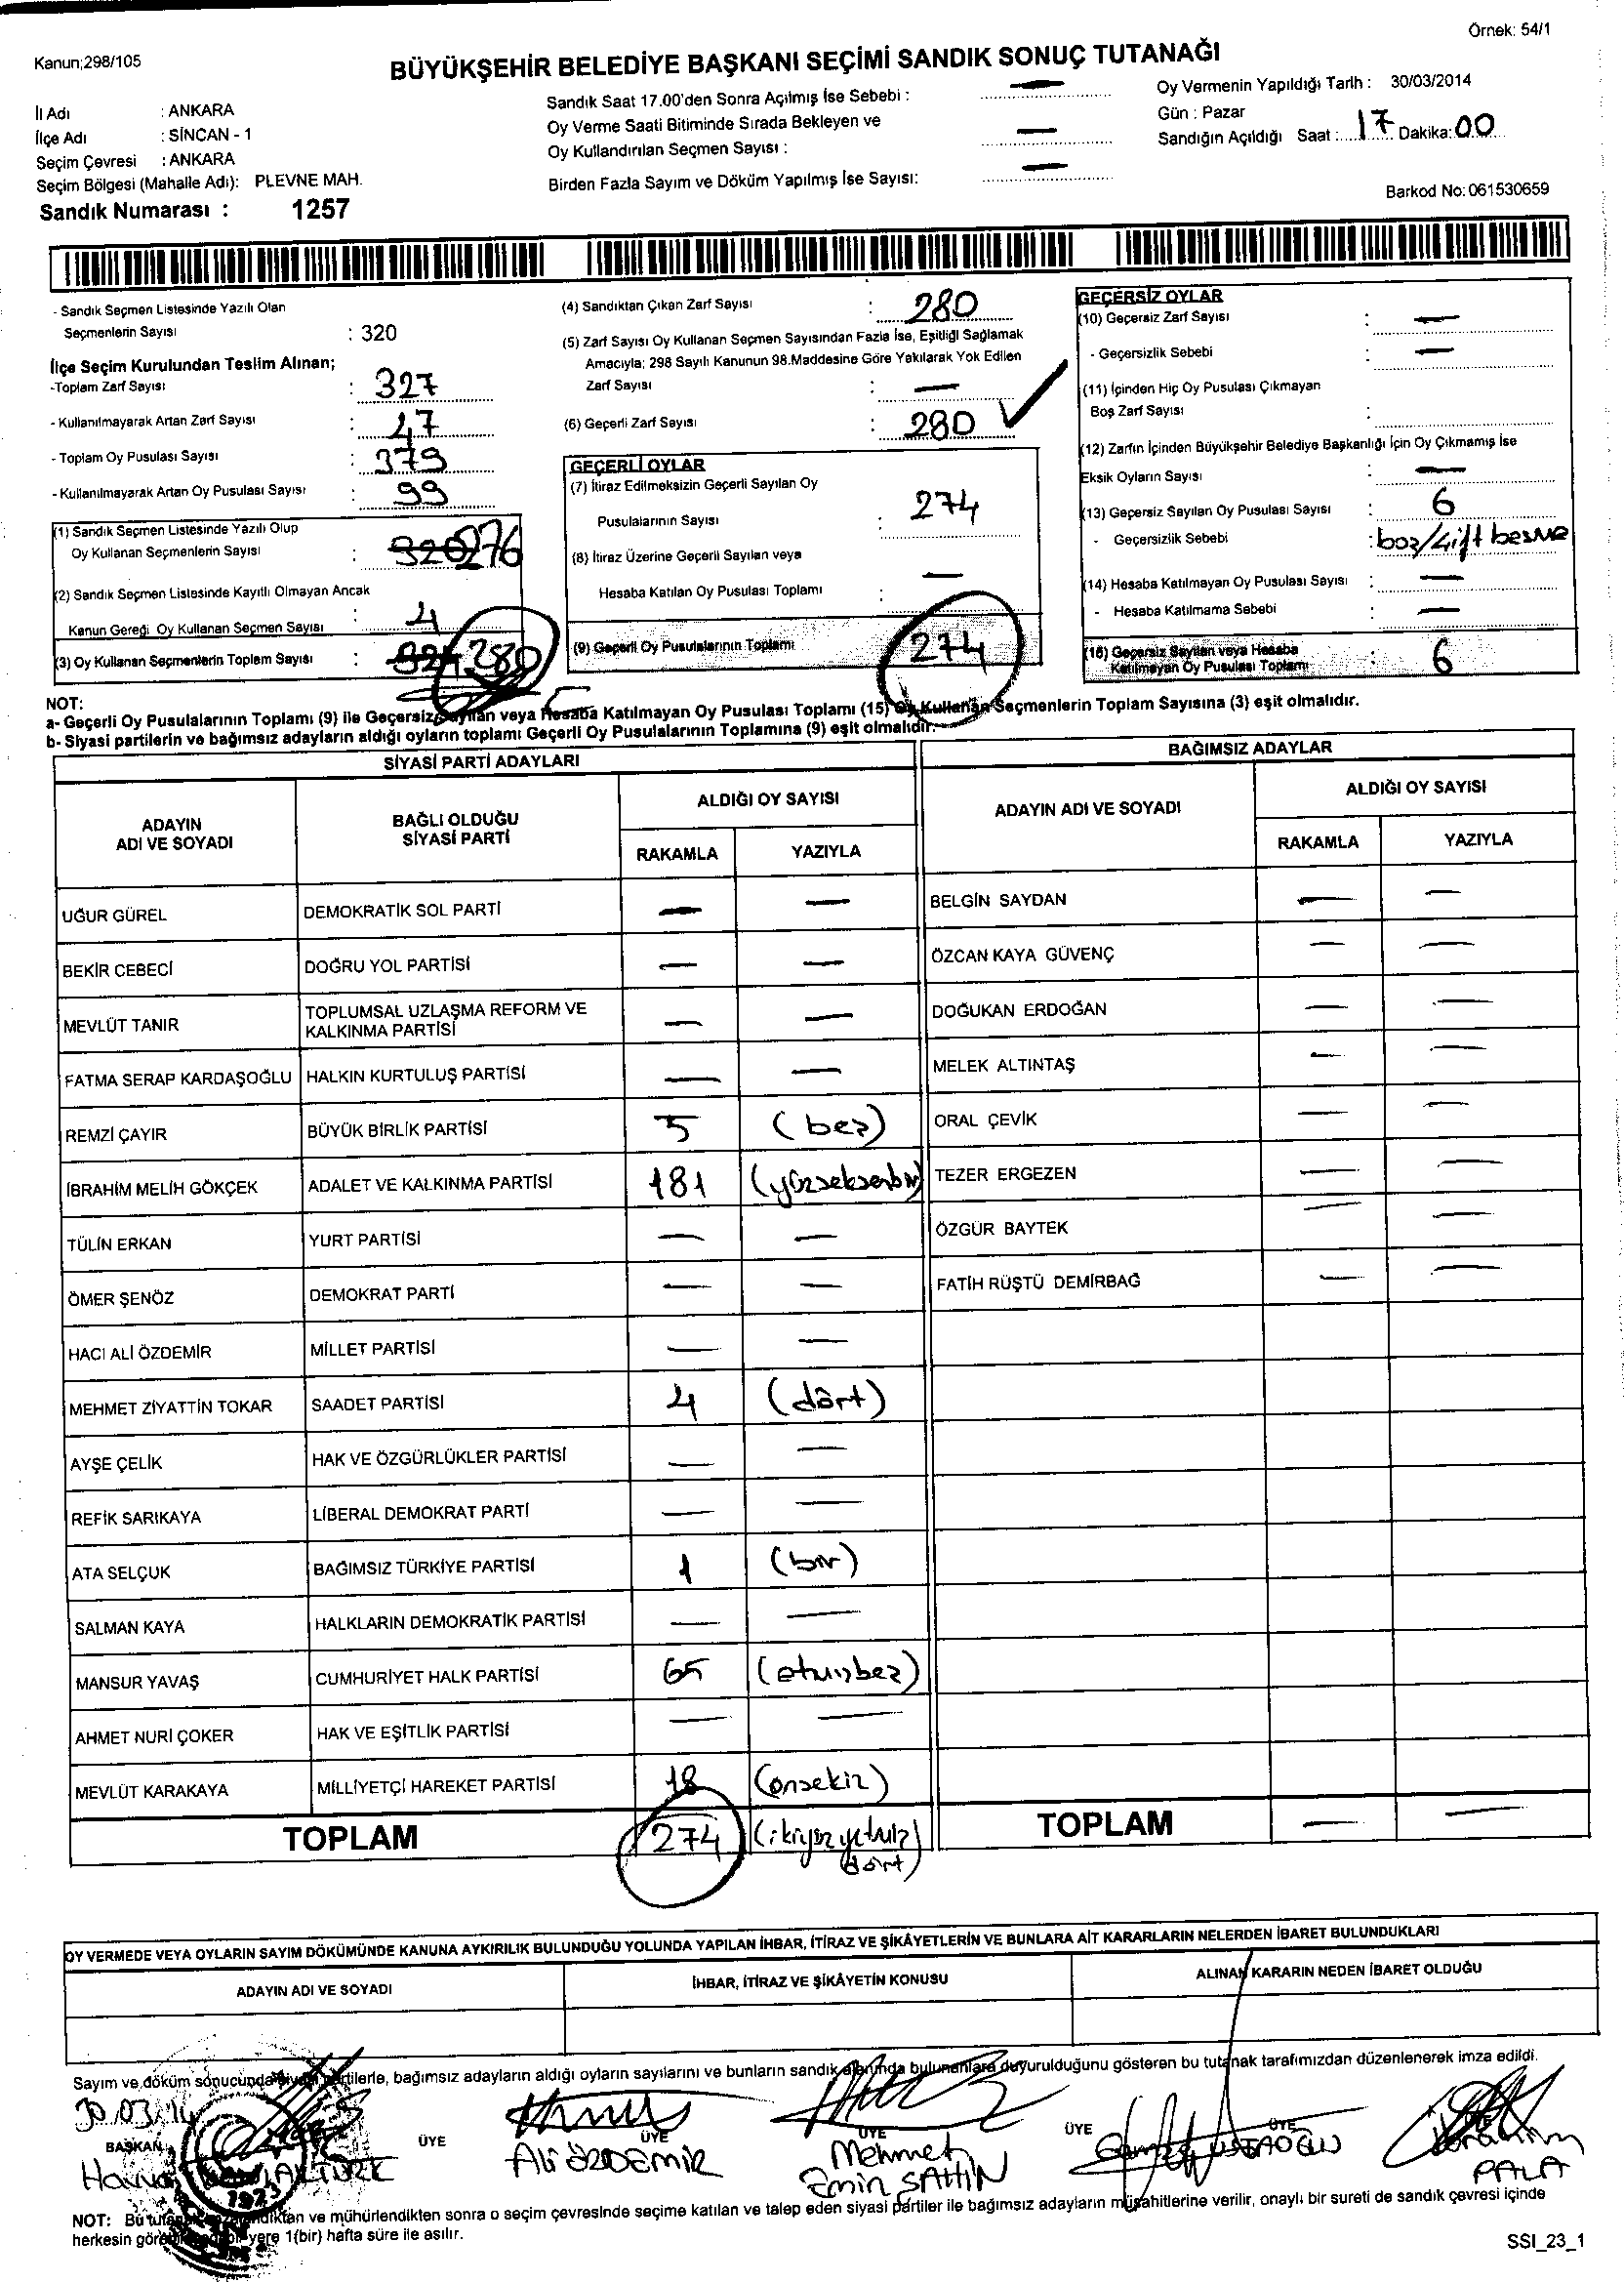 Örnek: 54/1
Kanun;298/105
BÜYÜKŞEHİR BELEDİYE BAŞKANI SEÇİMİ SANDIK SONUÇ TUTANAĞI
İl Adı : ANKARA
İlçe Adı : SİNCAN - 1
Seçim Çevresi : ANKARA
Seçim Bölgesi (Mahalle Adı): PLEVNE MAH.
Sandık Numarası : 1257
Sandık Saat 17.00'den Sonra Açılmış İse Sebebi : —
Oy Verme Saati Bitiminde Sırada Bekleyen ve
Oy Kullandırılan Seçmen Sayısı : —
Birden Fazla Sayım ve Döküm Yapılmış İse Sayısı: —
Oy Vermenin Yapıldığı Tarih : 30/03/2014
Gün : Pazar
Sandığın Açıldığı Saat : 17 Dakika: 00
Barkod No: 061530659
- Sandık Seçmen Listesinde Yazılı Olan
Seçmenlerin Sayısı : 320
İlçe Seçim Kurulundan Teslim Alınan;
-Toplam Zarf Sayısı : 327
- Kullanılmayarak Artan Zarf Sayısı : 47
- Toplam Oy Pusulası Sayısı : 379
- Kullanılmayarak Artan Oy Pusulası Sayısı : 99
(1) Sandık Seçmen Listesinde Yazılı Olup
Oy Kullanan Seçmenlerin Sayısı : 320 276
(2) Sandık Seçmen Listesinde Kayıtlı Olmayan Ancak
Kanun Gereği Oy Kullanan Seçmen Sayısı : 4
(3) Oy Kullanan Seçmenlerin Toplam Sayısı : 324 280
(4) Sandıktan Çıkan Zarf Sayısı : 280
(5) Zarf Sayısı Oy Kullanan Seçmen Sayısından Fazla İse, Eşitliği Sağlamak
Amacıyla; 298 Sayılı Kanunun 98.Maddesine Göre Yakılarak Yok Edilen
Zarf Sayısı : —
(6) Geçerli Zarf Sayısı : 280
GEÇERLİ OYLAR
(7) İtiraz Edilmeksizin Geçerli Sayılan Oy
Pusulalarının Sayısı : 274
(8) İtiraz Üzerine Geçerli Sayılan veya
Hesaba Katılan Oy Pusulası Toplamı : —
(9) Geçerli Oy Pusulalarının Toplamı 274
GEÇERSİZ OYLAR
(10) Geçersiz Zarf Sayısı : —
- Geçersizlik Sebebi : —
(11) İçinden Hiç Oy Pusulası Çıkmayan
Boş Zarf Sayısı :
(12) Zarfın İçinden Büyükşehir Belediye Başkanlığı İçin Oy Çıkmamış İse
Eksik Oyların Sayısı —
(13) Geçersiz Sayılan Oy Pusulası Sayısı : 6
- Geçersizlik Sebebi : boş/Çift
(14) Hesaba Katılmayan Oy Pusulası Sayısı : —
- Hesaba Katılmama Sebebi : —
(15) Geçersiz Sayılan veya Hesaba
Katılmayan Oy Pusulası Toplamı : 6
NOT:
a- Geçerli Oy Pusulalarının Toplamı (9) ile Geçersiz Sayılan veya Hesaba Katılmayan Oy Pusulası Toplamı (15) Oy Kullanan Seçmenlerin Toplam Sayısına (3) eşit olmalıdır.
b- Siyasi partilerin ve bağımsız adayların aldığı oyların toplamı Geçerli Oy Pusulalarının Toplamına (9) eşit olmalıdır.
SİYASİ PARTİ ADAYLARI
ADAYIN ADI VE SOYADI BAĞLI OLDUĞU SİYASİ PARTİ ALDIĞI OY SAYISI
RAKAMLA YAZIYLA
UĞUR GÜREL DEMOKRATİK SOL PARTİ — —
BEKİR CEBECİ DOĞRU YOL PARTİSİ — —
MEVLÜT TANIR TOPLUMSAL UZLAŞMA REFORM VE KALKINMA PARTİSİ — —
FATMA SERAP KARDAŞOĞLU HALKIN KURTULUŞ PARTİSİ — —
REMZİ ÇAYIR BÜYÜK BİRLİK PARTİSİ 5 (beş)
İBRAHİM MELİH GÖKÇEK ADALET VE KALKINMA PARTİSİ 181 (yüzseksenbir)
TÜLİN ERKAN YURT PARTİSİ — —
ÖMER ŞENÖZ DEMOKRAT PARTİ — —
HACI ALİ ÖZDEMİR MİLLET PARTİSİ — —
MEHMET ZİYATTİN TOKAR SAADET PARTİSİ 4 (dört)
AYŞE ÇELİK HAK VE ÖZGÜRLÜKLER PARTİSİ — —
REFİK SARIKAYA LİBERAL DEMOKRAT PARTİ — —
ATA SELÇUK BAĞIMSIZ TÜRKİYE PARTİSİ 1 (bir)
SALMAN KAYA HALKLARIN DEMOKRATİK PARTİSİ — —
MANSUR YAVAŞ CUMHURİYET HALK PARTİSİ 65
AHMET NURİ ÇOKER HAK VE EŞİTLİK PARTİSİ — —
MEVLÜT KARAKAYA MİLLİYETÇİ HAREKET PARTİSİ 18 (onsekiz)
TOPLAM 274 (ikiyüzyetmiş dört)
BAĞIMSIZ ADAYLAR
ADAYIN ADI VE SOYADI ALDIĞI OY SAYISI
RAKAMLA YAZIYLA
BELGİN SAYDAN — —
ÖZCAN KAYA GÜVENÇ — —
DOĞUKAN ERDOĞAN — —
MELEK ALTINTAŞ — —
ORAL ÇEVİK — —
TEZER ERGEZEN — —
ÖZGÜR BAYTEK — —
FATİH RÜŞTÜ DEMİRBAĞ — —
TOPLAM — —
OY VERMEDE VEYA OYLARIN SAYIM DÖKÜMÜNDE KANUNA AYKIRILIK BULUNDUĞU YOLUNDA YAPILAN İHBAR, İTİRAZ VE ŞİKÂYETLERİN VE BUNLARA AİT KARARLARIN NELERDEN İBARET BULUNDUKLARI
ADAYIN ADI VE SOYADI İHBAR, İTİRAZ VE ŞİKÂYETİN KONUSU ALINAN KARARIN NEDEN İBARET OLDUĞU
Sayım ve döküm sonucunda siyasi partilerle, bağımsız adayların aldığı oyların sayılarını ve bunların sandık alanında bulunanlara duyurulduğunu gösteren bu tutanak tarafımızdan düzenlenerek imza edildi.
30.03.14
BAŞKAN ÜYE ÜYE ÜYE ÜYE ÜYE ÜYE
Ali ÖZDEMİR
Mehmet
Emin ŞAHİN
USTAOĞLU
İbrahim
PALA
1923
NOT: Bu tutanak ve mühürlendikten sonra o seçim çevresinde seçime katılan ve talep eden siyasi partiler ile bağımsız adayların müşahitlerine verilir, onaylı bir sureti de sandık çevresi içinde
herkesin yere 1(bir) hafta süre ile asılır.
SSI_23_1